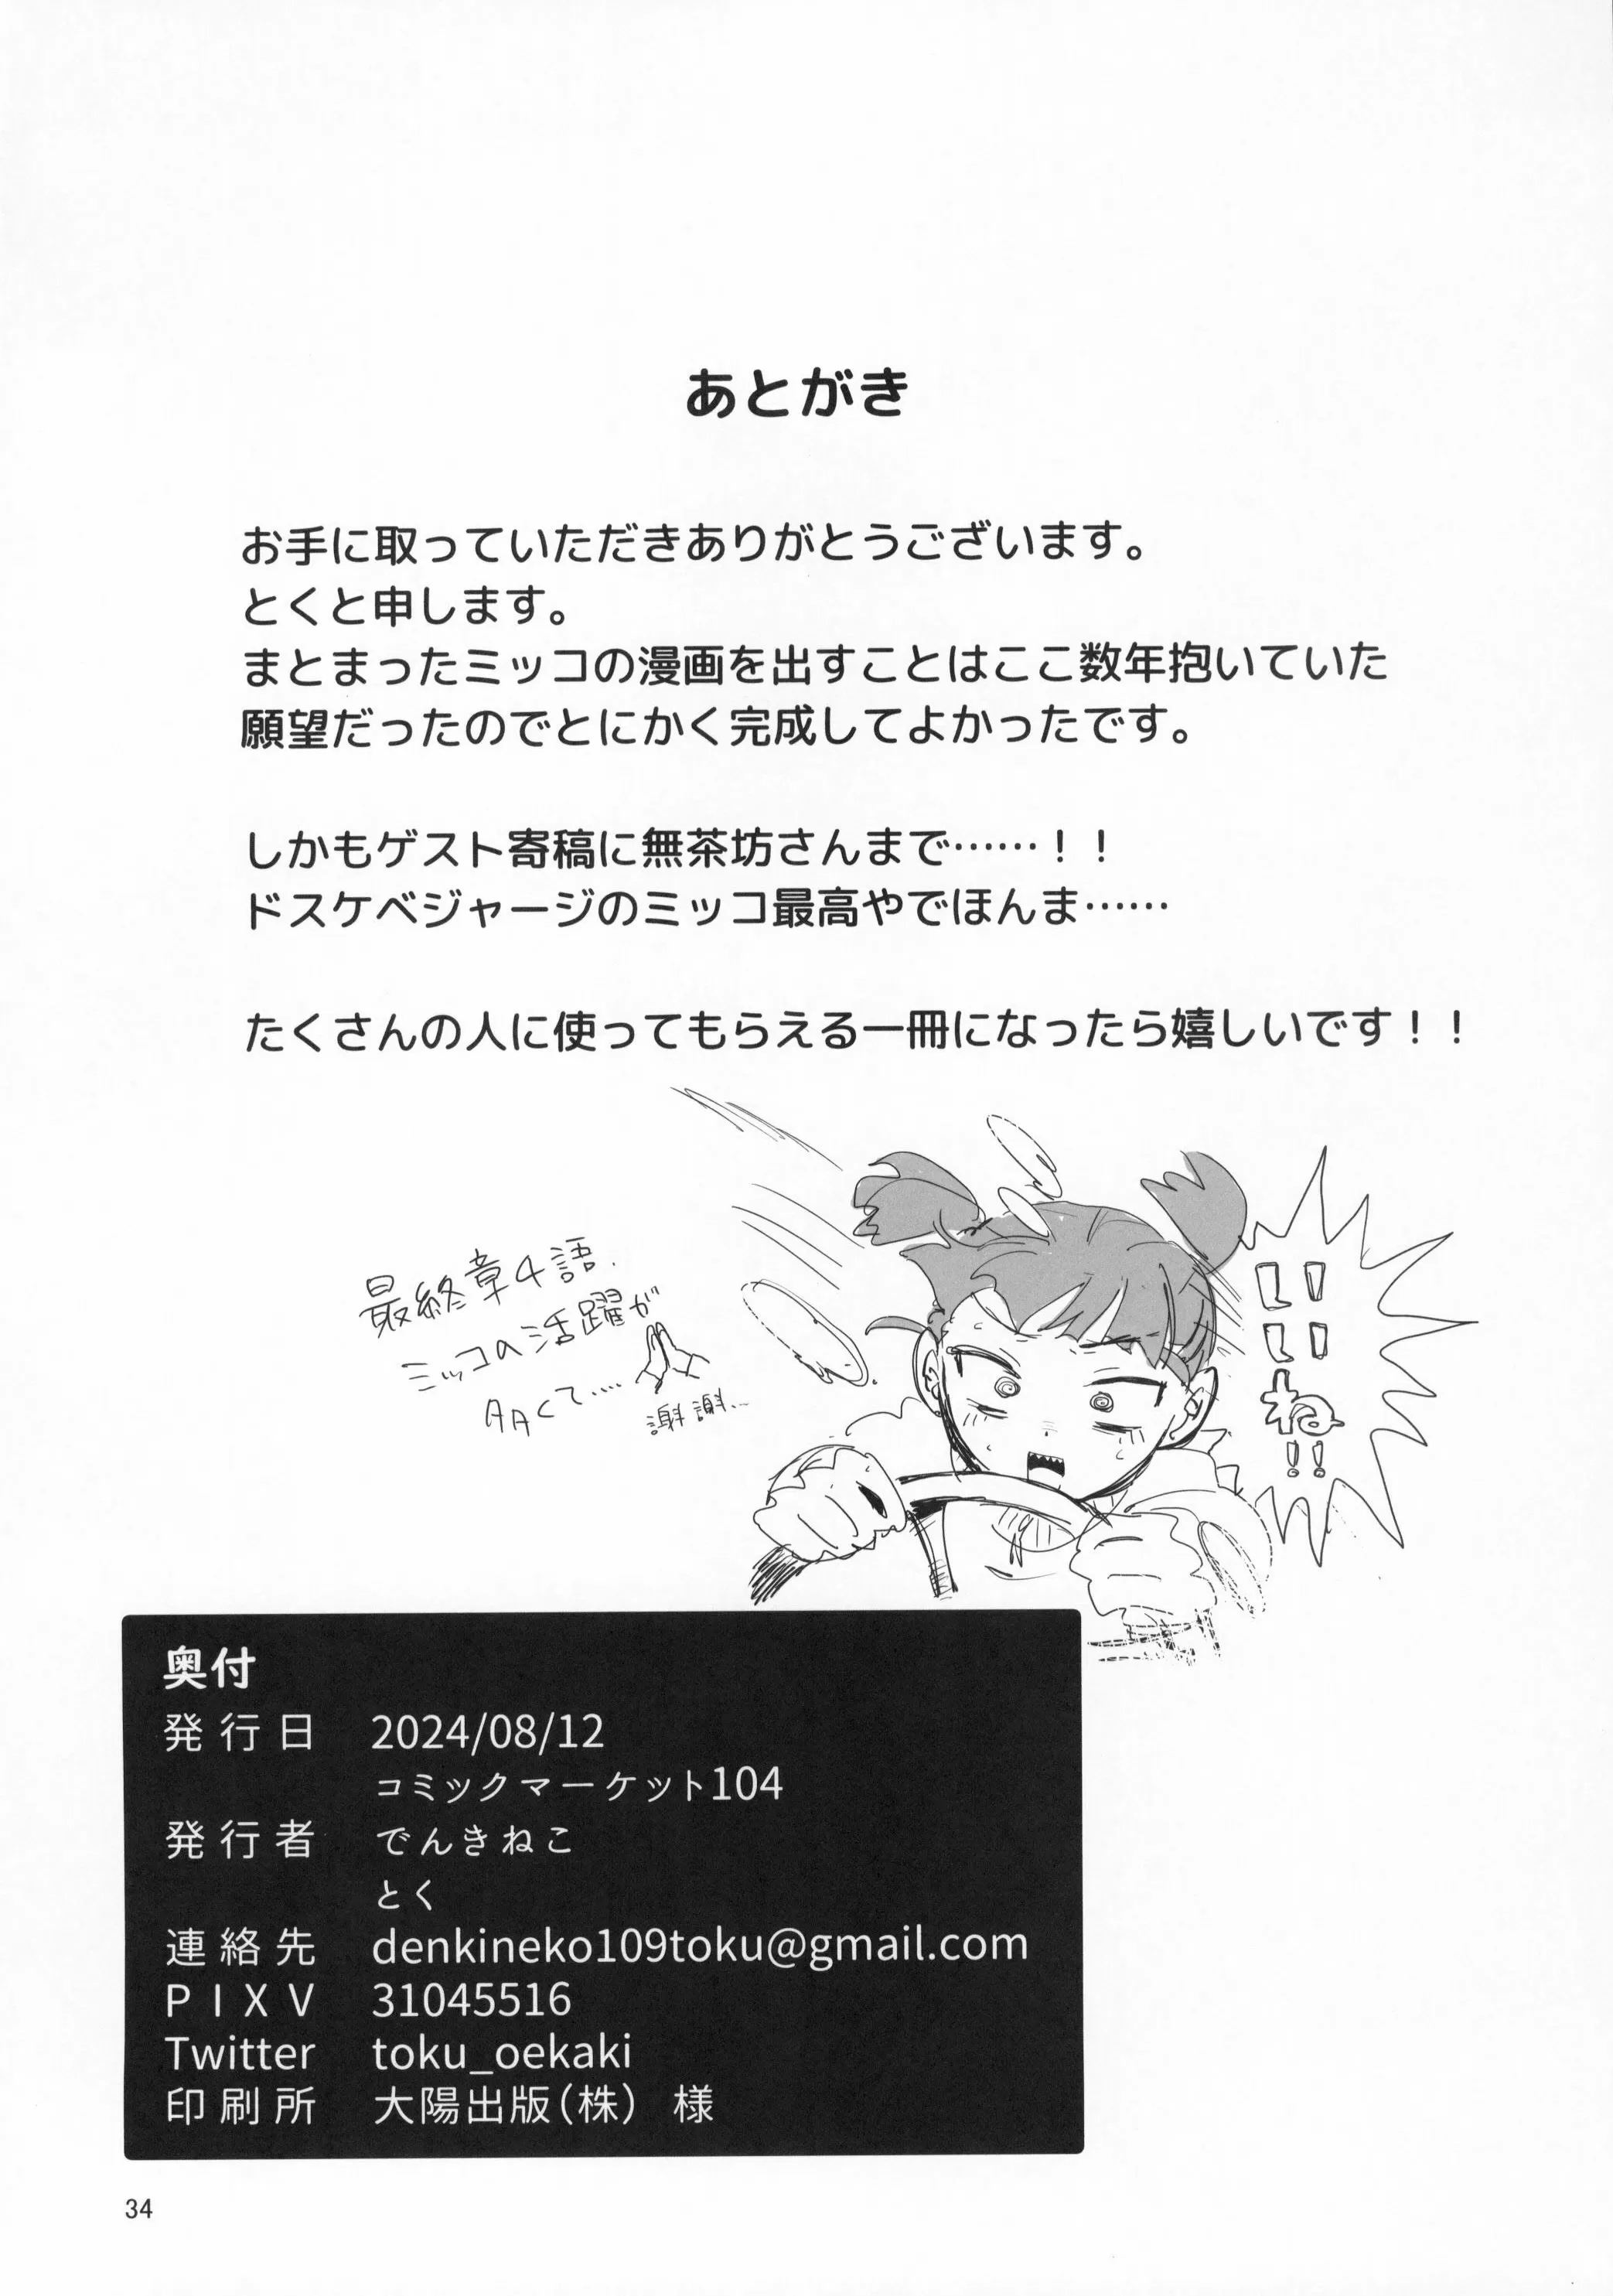 あとがき
お手に取っていただきありがとうございます。
とくと申します。
まとまったミッコの漫画を出すことはここ数年抱いていた
願望だったのでとにかく完成してよかったです。
しかもゲスト寄稿に無茶坊さんまで……！！
ドスケベジャージのミッコ最高やでほんま……
たくさんの人に使ってもらえる一冊になったら嬉しいです！！
最終章4語.
ミッコの活躍が
謝謝...
いい
いい
ね
!!
奥付
発行日 2024/08/12
コミックマーケット104
発行者 でんきねこ
とく
連絡先 denkineko109toku@gmail.com
PIXV 31045516
Twitter toku_oekaki
印刷所 大陽出版(株) 様
34